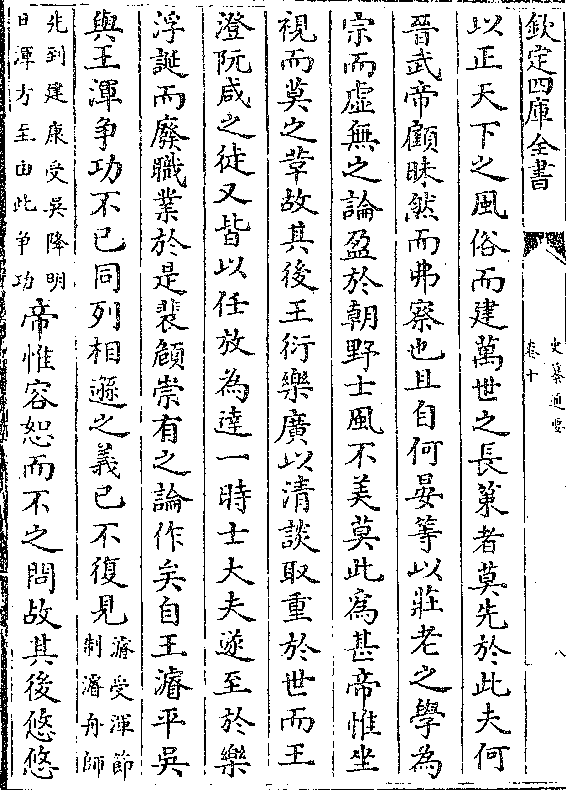 欽定四庫全書
史纂通要
卷十
八
以正天下之風俗而建萬世之長策者莫先於此夫何
晉武帝顧昧然而弗察也且自何晏等以莊老之學為
宗而虛無之論盈於朝野士風不美莫此為甚帝惟坐
視而莫之革故其後王衍樂廣以清談取重於世而王
澄阮咸之徒又皆以任放為達一時士大夫遂至於樂
浮誕而廢職業於是裴頠崇有之論作矣自王濬平吳
與王渾争功不已同列相遜之義已不復見濬受渾節制濬舟師
兆到建康受吳降明日渾方至由此争功帝惟容恕而不之問故其後悠悠